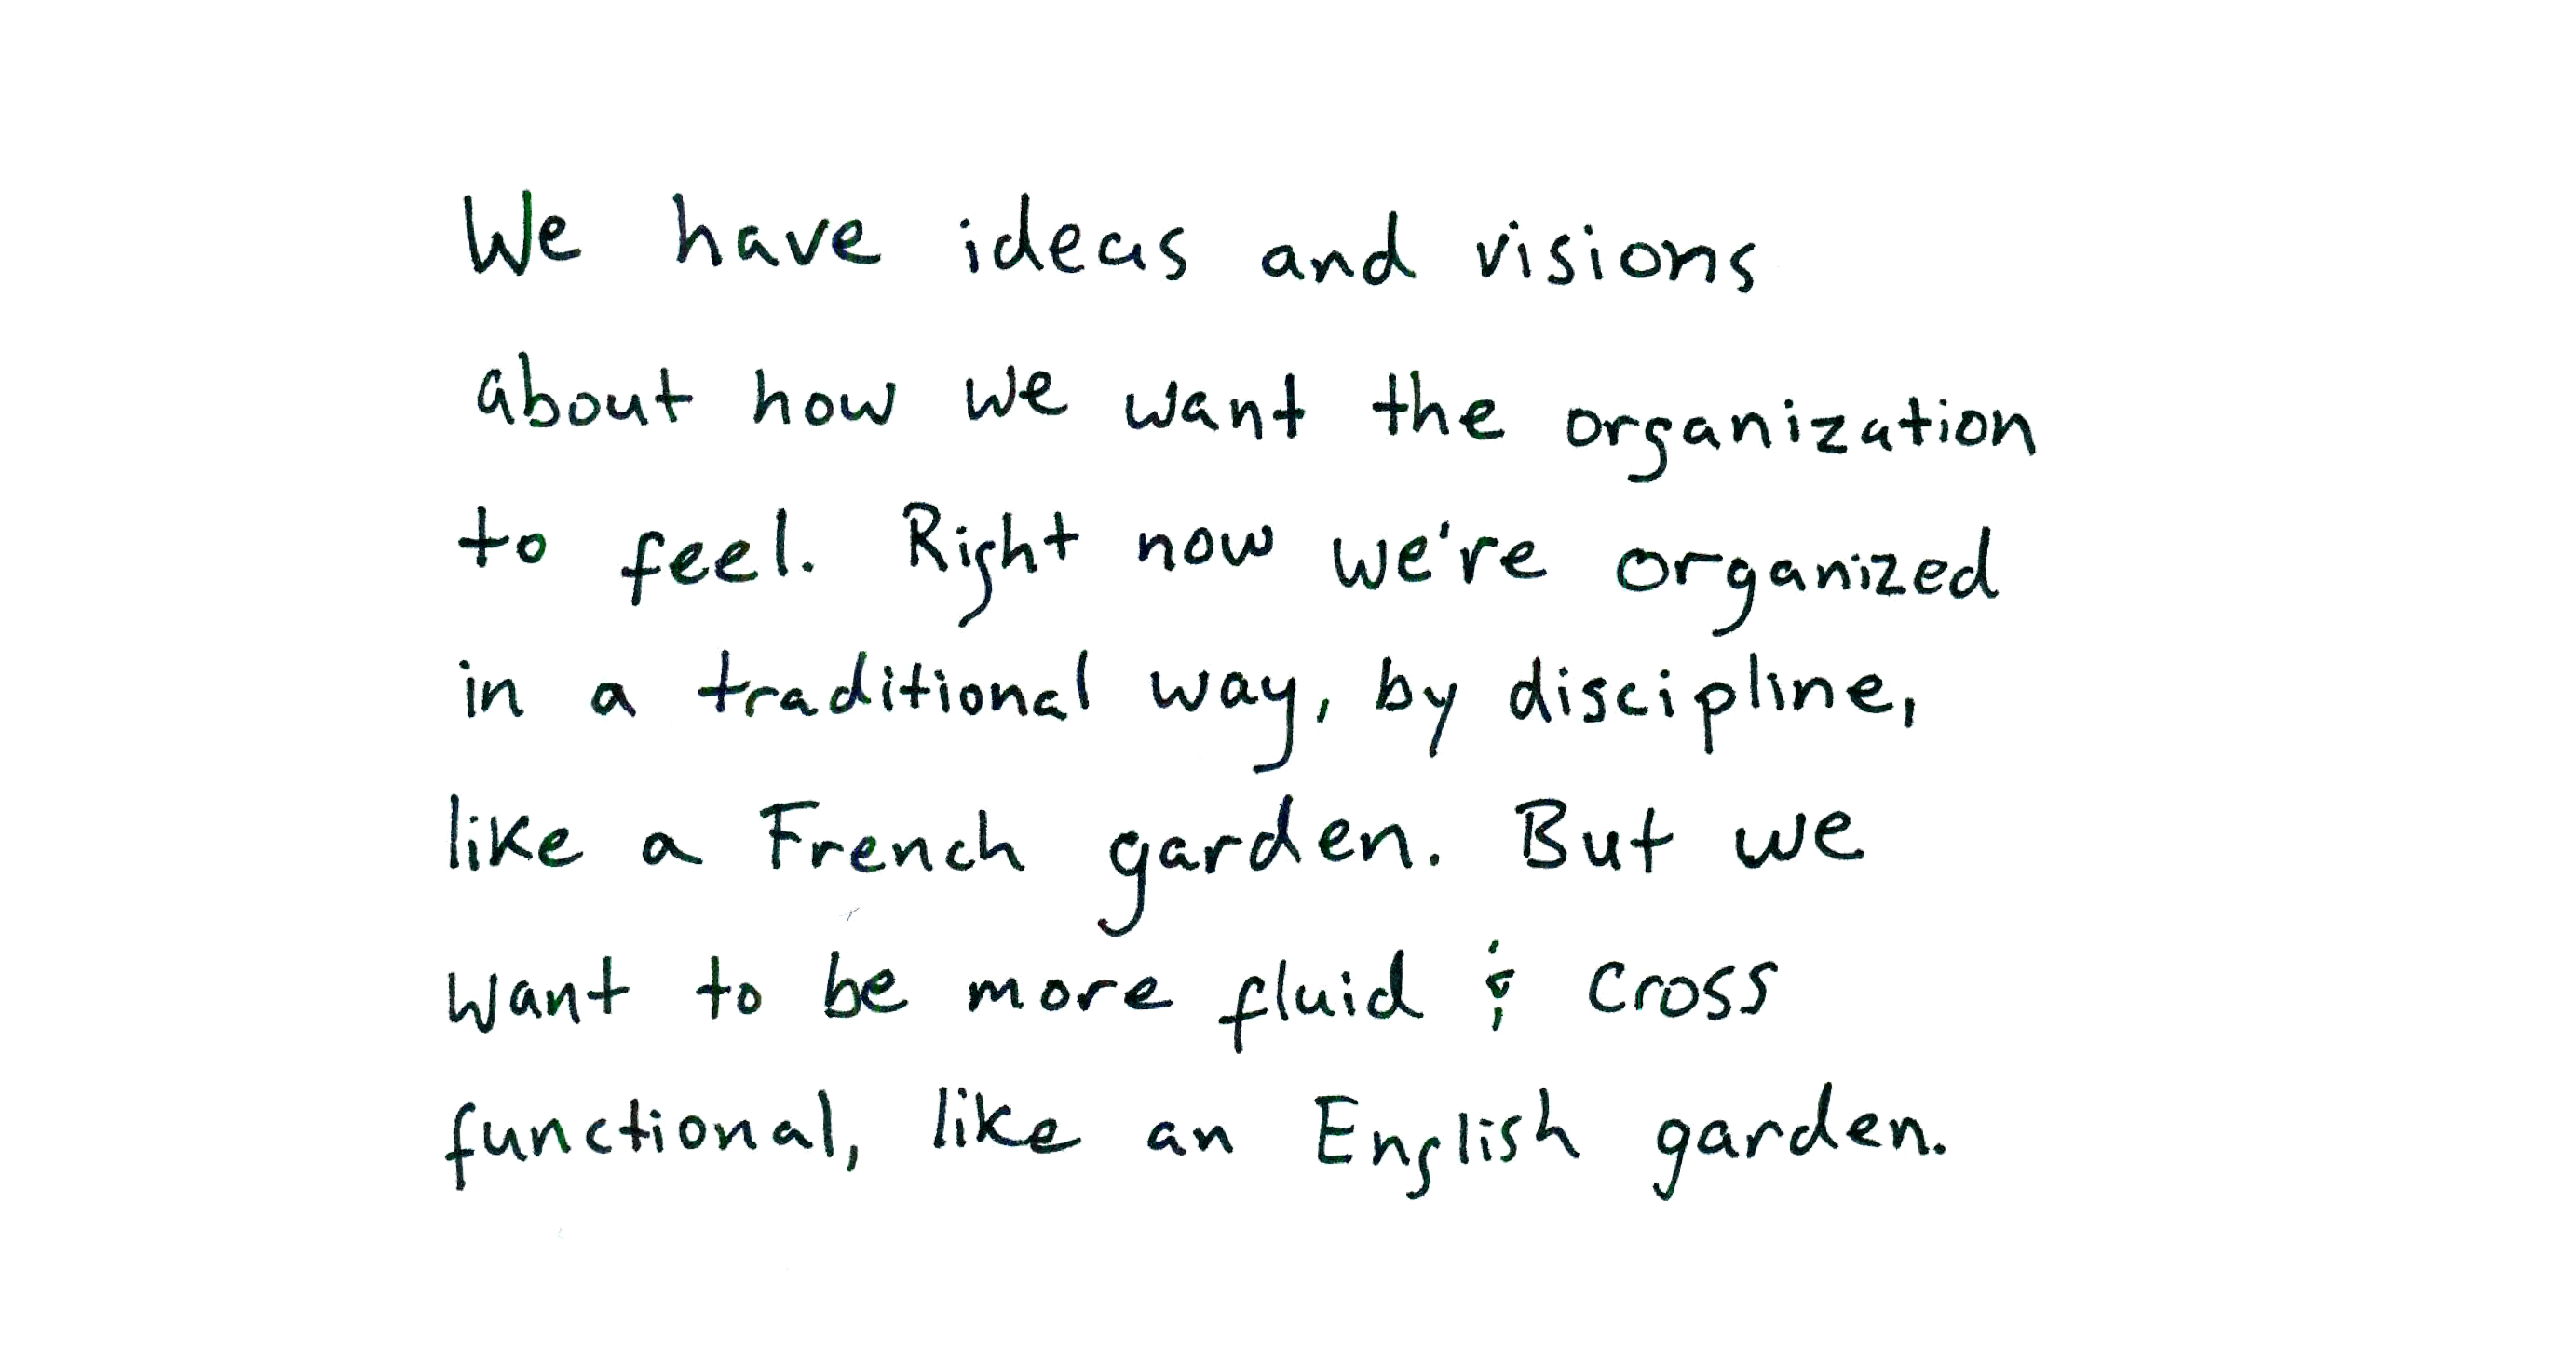 We have ideas and visions
about how we want the organization
to feel. Right now we're organized
in a traditional way, by discipline,
like a French garden. But we
want to be more fluid & cross
functional, like an English garden.